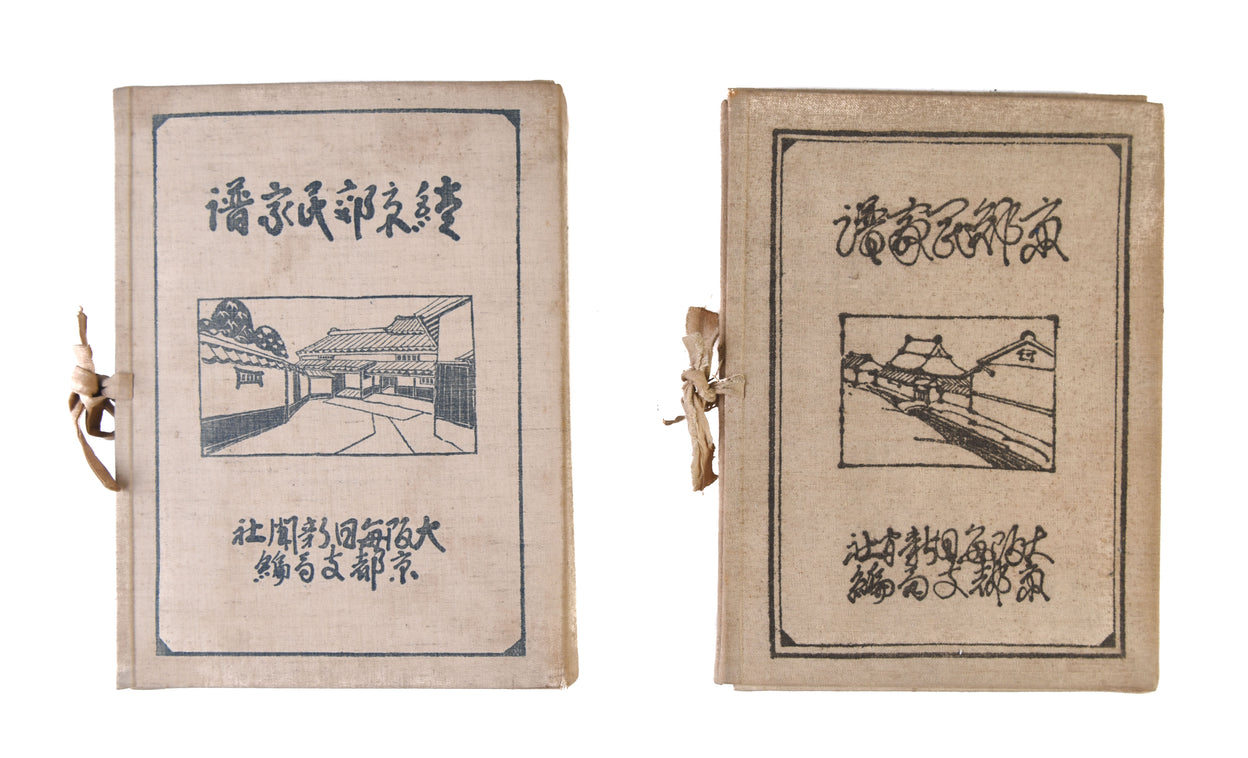 續京郊民家譜
大阪毎日新聞社
京都支局編
京郊民家譜
大阪毎日新聞社
京都支局編